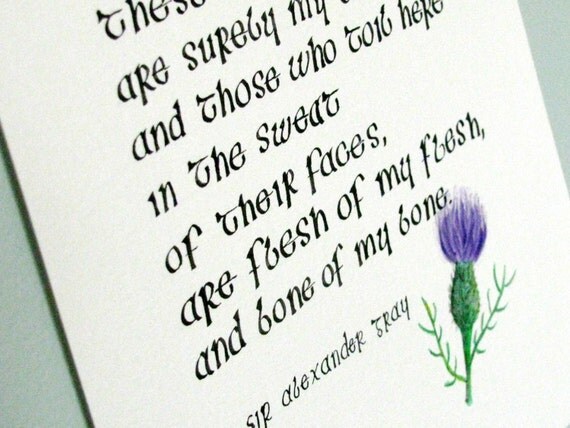 These
are surely my
and those who toil here
in the sweat
of their faces,
are flesh of my flesh,
and bone of my bone.
Sir Alexander Gray